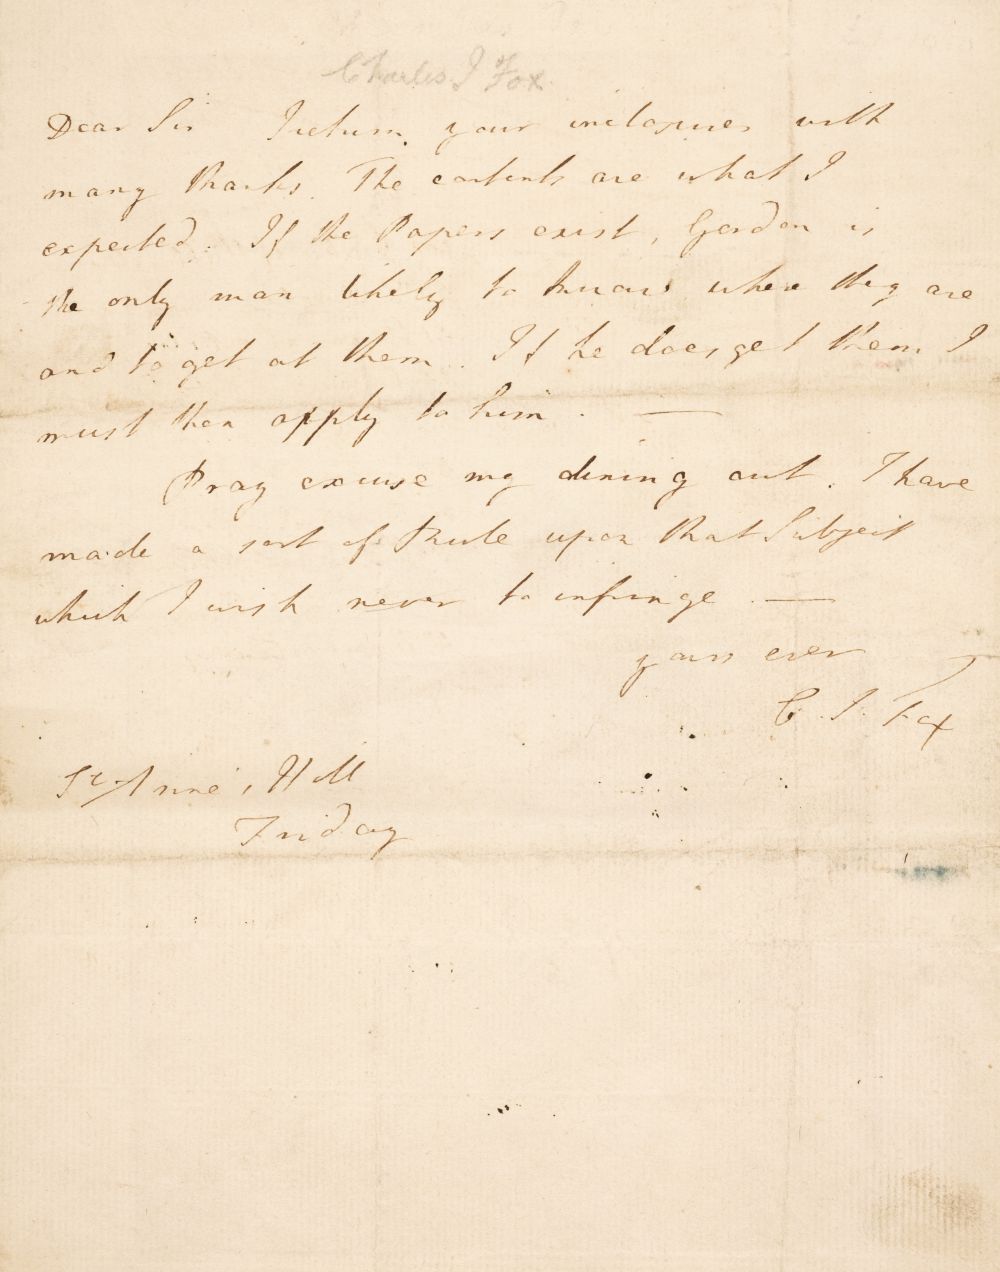 Charles J Fox
Dear Sir I return your inclosures with
many thanks. The contents are what I
expected. If the Papers exist, Gordon is
the only man likely to know where they are
and to get at them. If he does get them I
must then apply to him. —
Pray excuse my dining out. I have
made a sort of Rule upon that Subject
which I wish never to infringe. —
yours ever
C. J. Fox
St Anne's Hill
Friday